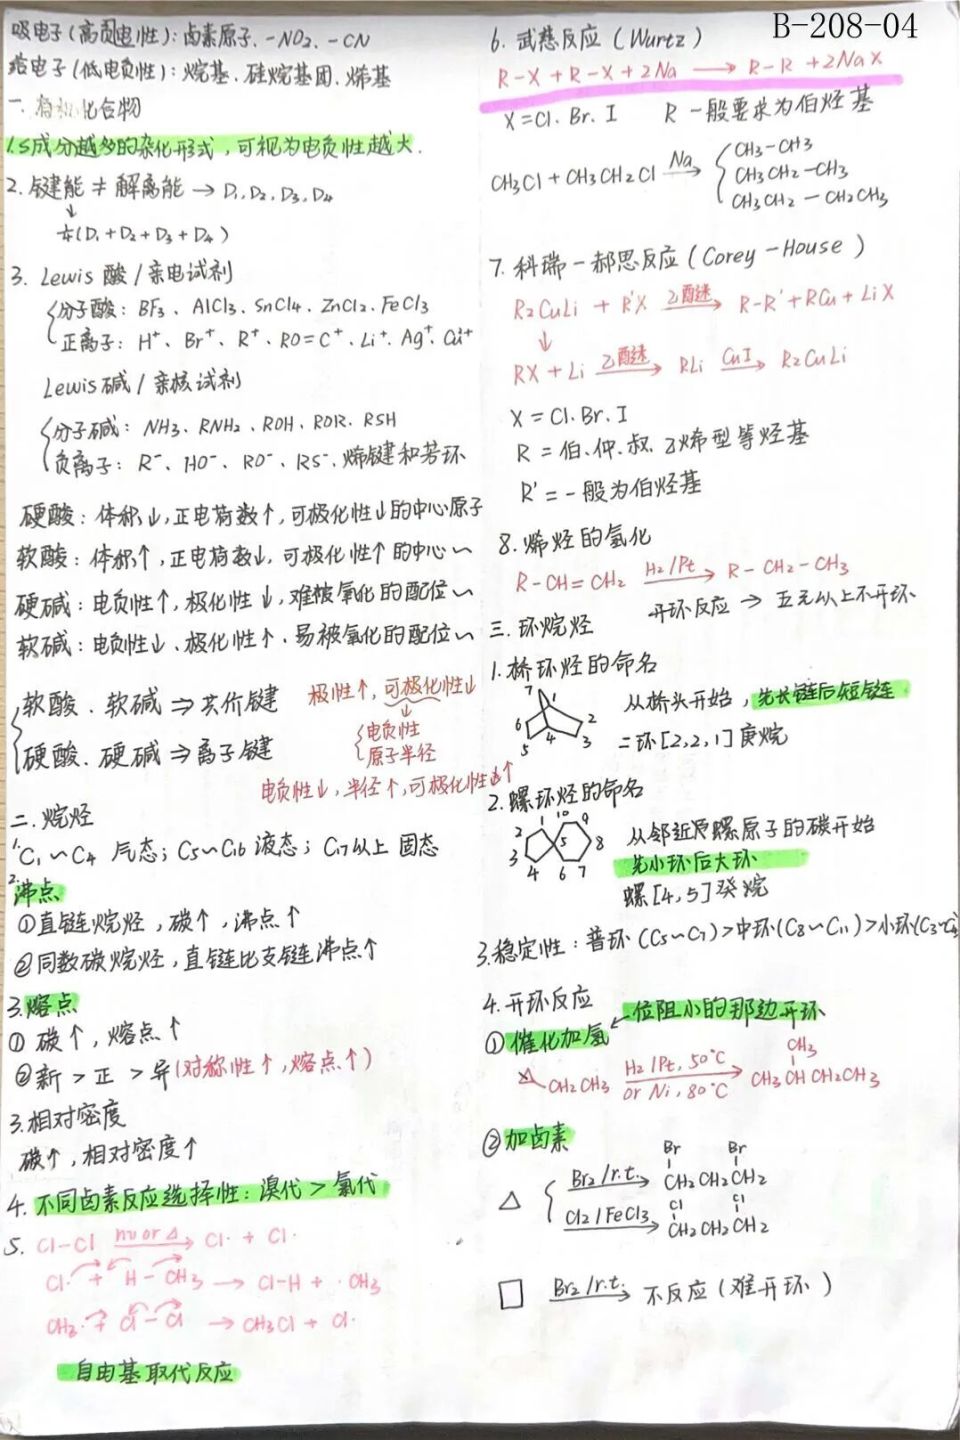 B-208-04
吸电子(高负电性): 卤素原子. -NO2. -CN
给电子(低电负性): 烷基. 硅烷基团. 烯基
一. 有机化合物
1.S成分越多的杂化形式, 可视为电负性越大.
2. 键能 ≠ 解离能 → D1, D2, D3, D4
↓
¼(D1 + D2 + D3 + D4)
3. Lewis 酸 / 亲电试剂
分子酸: BF3、AlCl3. SnCl4. ZnCl2. FeCl3
正离子: H⁺、Br⁺、R⁺、RO=C⁺、Li⁺. Ag⁺. Cu²⁺
Lewis碱 / 亲核试剂
分子碱: NH3. RNH2. ROH. ROR. RSH
负离子: R⁻、HO⁻、RO⁻、RS⁻. 烯键和芳环
硬酸: 体积↓, 正电荷数↑, 可极化性↓的中心原子
软酸: 体积↑, 正电荷数↓, 可极化性↑的中心~
硬碱: 电负性↑, 极化性↓, 难被氧化的配位~
软碱: 电负性↓. 极化性↑. 易被氧化的配位~
软酸. 软碱 ⇒ 共价键
硬酸. 硬碱 ⇒ 离子键
极性↑, 可极化性↓
↓
电负性
原子半径
电负性↓, 半径↑, 可极化性↑
二. 烷烃
1. C1~C4 气态; C5~C16 液态; C17以上 固态
2. 沸点
①直链烷烃, 碳↑, 沸点↑
②同数碳烷烃, 直链比支链沸点↑
3. 熔点
① 碳↑, 熔点↑
②新 > 正 > 异(对称性↑, 熔点↑)
3.相对密度
碳↑, 相对密度↑
4. 不同卤素反应选择性: 溴代 > 氯代
5. Cl-Cl hν or △ → Cl· + Cl·
Cl· + H-CH3 → Cl-H + ·CH3
CH3· + Cl-Cl → CH3Cl + Cl·
自由基取代反应
6. 武慈反应 (Wurtz)
R-X + R-X + 2Na → R-R + 2NaX
X = Cl. Br. I R一般要求为伯烃基
CH3Cl + CH3CH2Cl Na →
CH3-CH3
CH3CH2-CH3
CH3CH2-CH2CH3
7. 科瑞-郝思反应 (Corey-House)
R2CuLi + R'X 乙醚 → R-R' + RCu + LiX
↓
RX + Li 乙醚 → RLi CuI → R2CuLi
X = Cl. Br. I
R = 伯. 仲. 叔. 乙烯型等烃基
R' = 一般为伯烃基
8. 烯烃的氢化
R-CH=CH2 H2/Pt → R-CH2-CH3
开环反应 → 五元以上不开环
三. 环烷烃
1. 桥环烃的命名
1 2 3 4 5 6 7
从桥头开始, 先长链后短链
二环[2,2,1]庚烷
2. 螺环烃的命名
1 2 3 4 5 6 7 8 9 10
从邻近螺原子的碳开始
先小环后大环
螺[4,5]癸烷
3.稳定性: 普环(C5~C7) > 中环(C8~C11) > 小环(C3~C4)
4. 开环反应
位阻小的那边开环
①催化加氢
△CH2CH3 H2/Pt, 50°C or Ni, 80°C → CH3CH(CH3)CH2CH3
②加卤素
△ Br2/r.t. → BrCH2CH2CH2Br
Cl2/FeCl3 → ClCH2CH2CH2Cl
□ Br2/r.t. → 不反应(难开环)